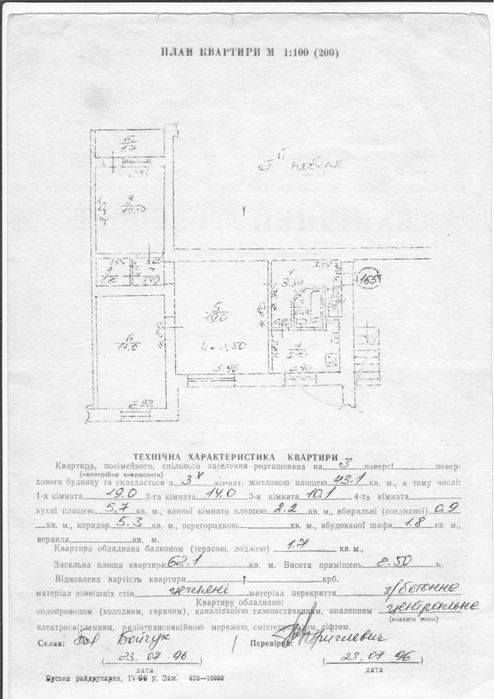 ПЛАН КВАРТИРИ М 1:100 (200)
3й поверх
10
1.7
9
10.10
5
19.0
h=2,50
5.96
6
14.0
2.92
1
3.30
4
5.7
165
ТЕХНІЧНА ХАРАКТЕРИСТИКА КВАРТИРИ
Квартира, посімейного, спільного заселення розташована на 3 поверсі повер-
(непотрібне викреслити)
хового будинку та складається з 3х кімнат, житловою площею 43.1 кв. м., а тому числі:
1-а кімната 19.0 2-га кімната 14.0 3-я кімната 10.1 4-та кімната
кухні площею 5,7 кв. м., ванної кімнати площею 2.2 кв. м., вбиральні (поєднаної) 0.9
кв. м., коридор 5.3 кв. м., перегородкою кв. м., вбудованої шафи 1.8 кв. м.,
веранди кв. м.
Квартира обладнана балконом (терасою, лоджею) 1.7 кв. м.,
Загальна площа квартири 62.1 кв. м. Висота приміщень 2.50 м.
Відновлена вартість квартири крб,
матеріал зовнішніх стін цегляні матеріал перекриття з/бетонне
Квартиру обладнано:
водопроводом (холодним, гарячим), каналізацією газопостачанням, опаленням центральне
(вказати який)
електроосвітленням, радіотрансляційною мережею, сміттєпроводом, ліфтом.
Склав: Бойчук Перевірив:
23.07.96 23.07.96
дата дата
Буська райдрукарня, IV-96 р. Зам. 620—10000